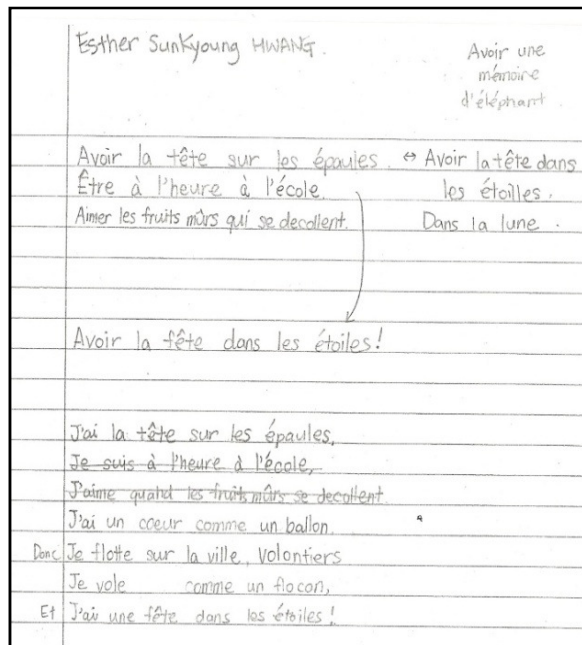 Esther Sunkyoung HWANG.
Avoir une
mémoire
d'éléphant
Avoir la tête sur les épaules. ↔ Avoir la tête dans
Être à l'heure à l'école. les étoiles.
Aimer les fruits mûrs qui se decollent. Dans la lune.
Avoir la fête dans les étoiles!
J'ai la tête sur les épaules,
Je suis à l'heure à l'école,
J'aime quand les fruits mûrs se decollent.
J'ai un coeur comme un ballon.
Donc Je flotte sur la ville, volontiers
Je vole comme un flocon,
Et J'ai une fête dans les étoiles!